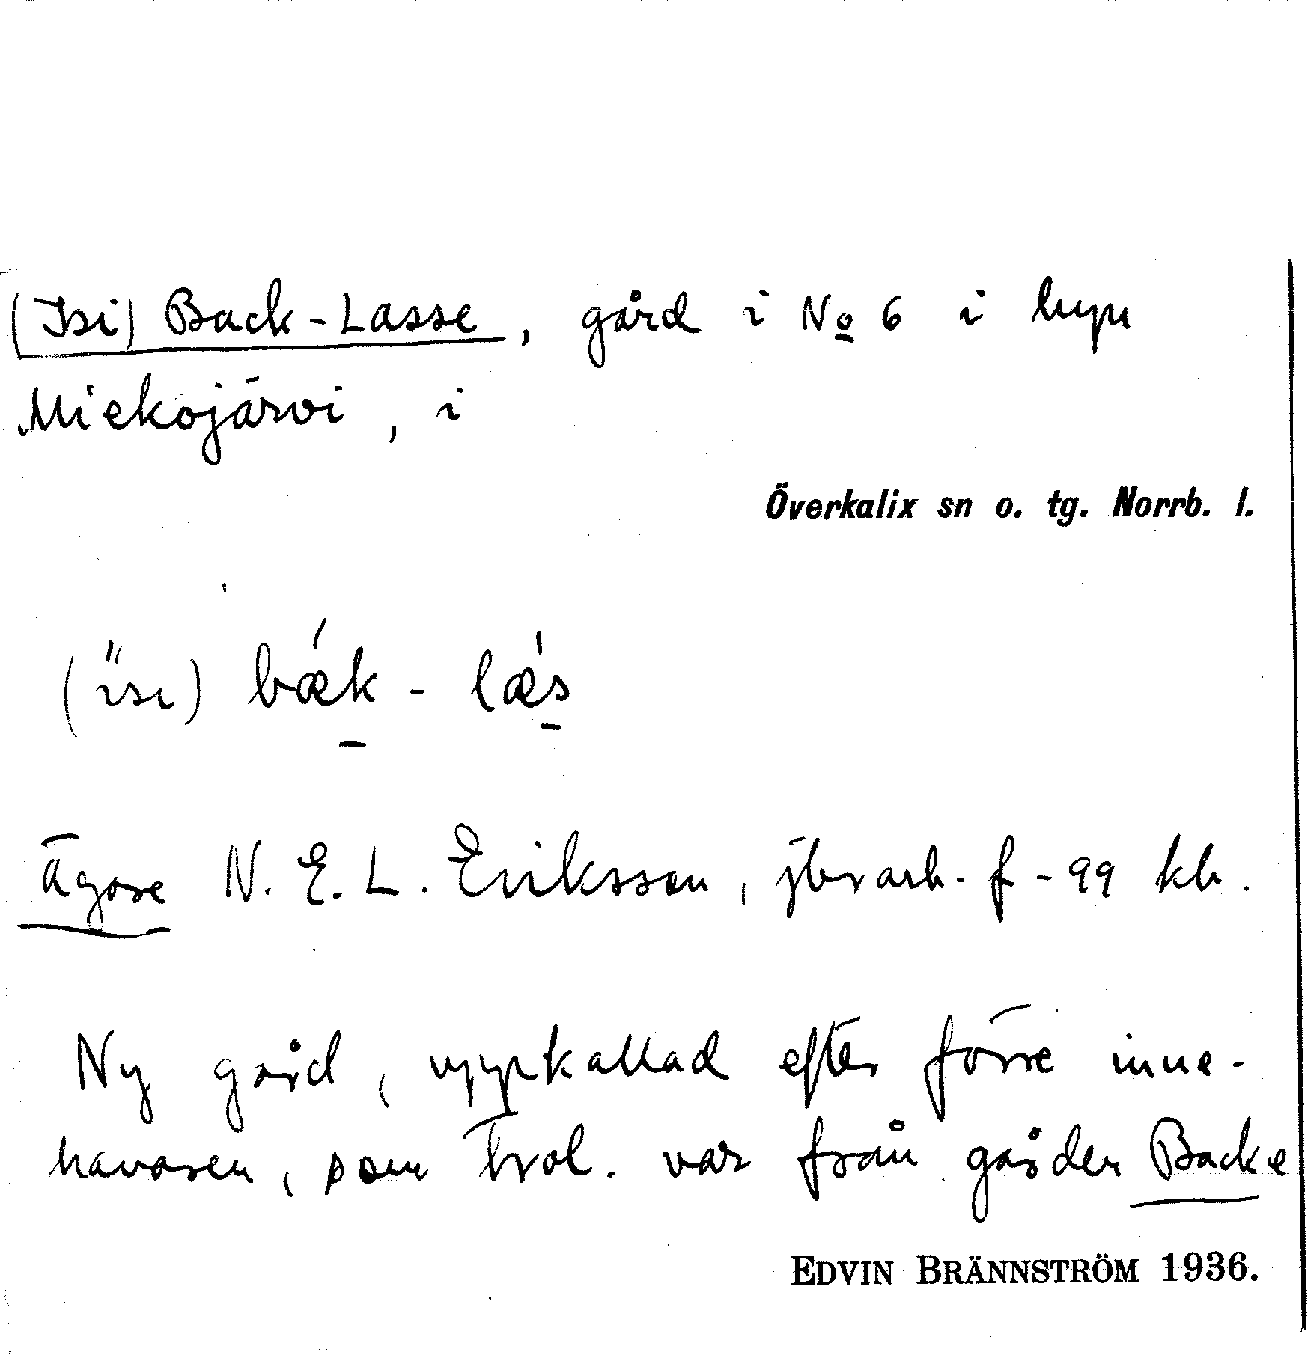 (Isi) Back-Lasse, gård i No 6 i byn
Miekojärvi, i
Överkalix sn o. tg. Norrb. l.
bǽk - lǽs
Ägare N. E. L. Eriksson, jbrarb. f -99 kb.
Ny gård, uppkallad efter förre inne-
havaren, som trol. var från gården Backe
EDVIN BRÄNNSTRÖM 1936.